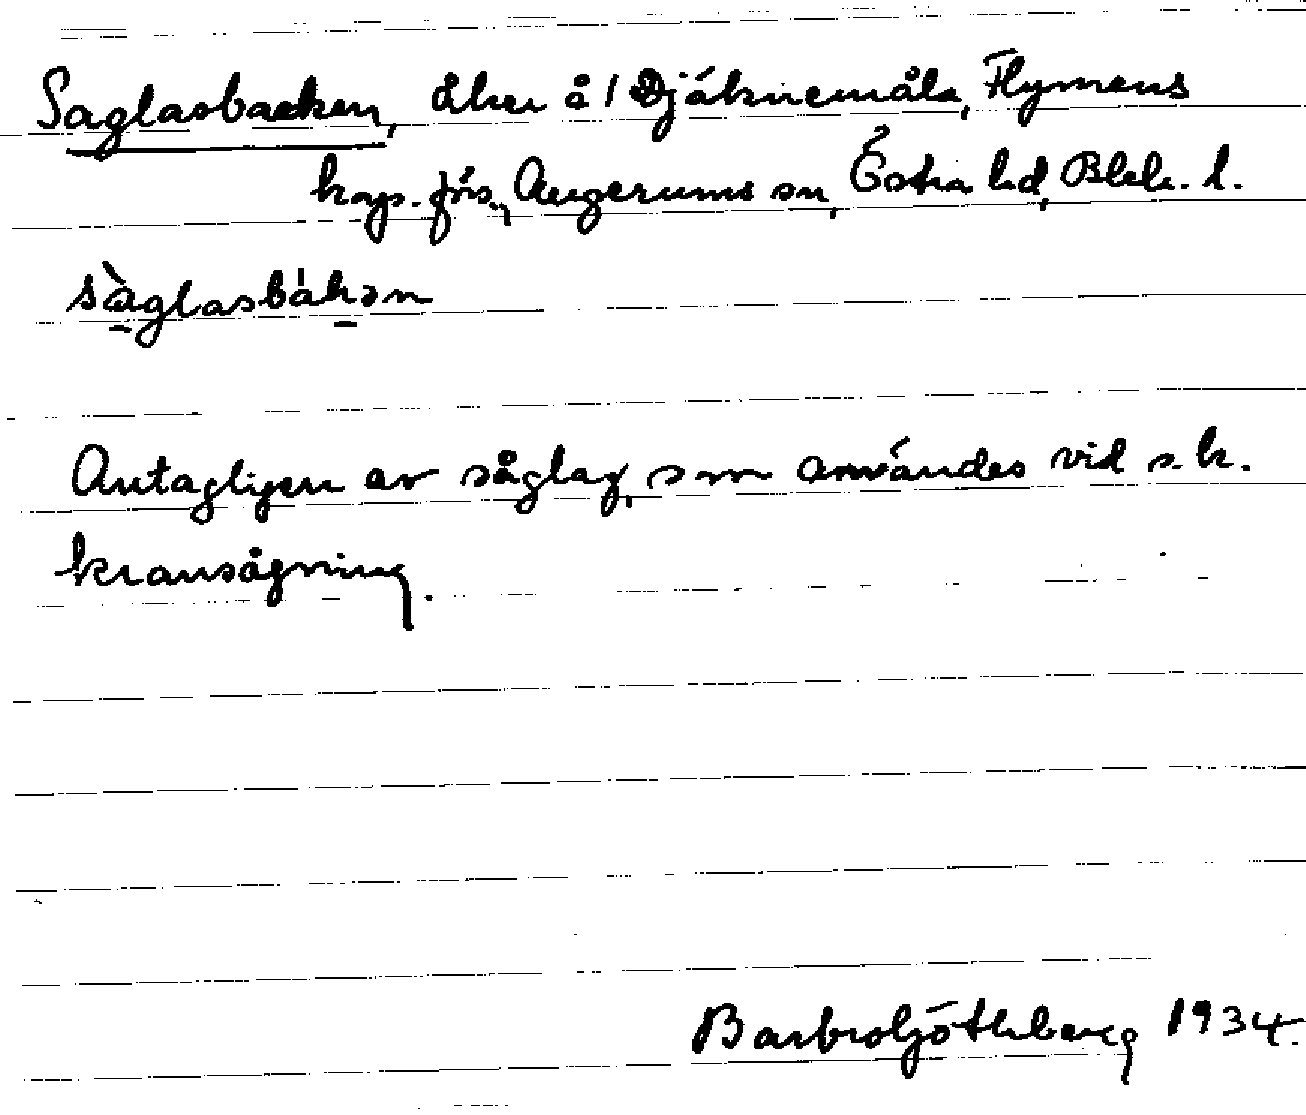 Saglasbacken, åker å 1 Djäknemåla, Flymens
kap. förs., Augerums sn, Östra hd, Blek. l.
sàglasbákən
Antagligen av såglag, som användes vid s.k.
kransågning.
Barbro Göthberg 1934.